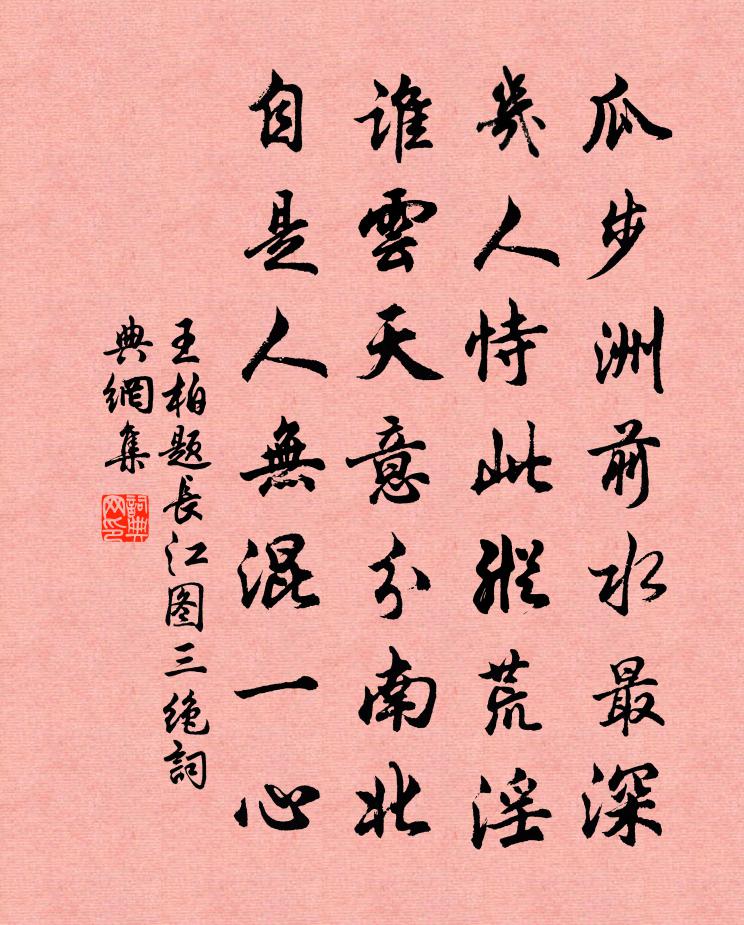 瓜步洲前水最深
幾人恃此縱荒淫
誰雲天意分南北
自是人無混一心
王柏题長江图三绝詞
典網集
詞典
网印